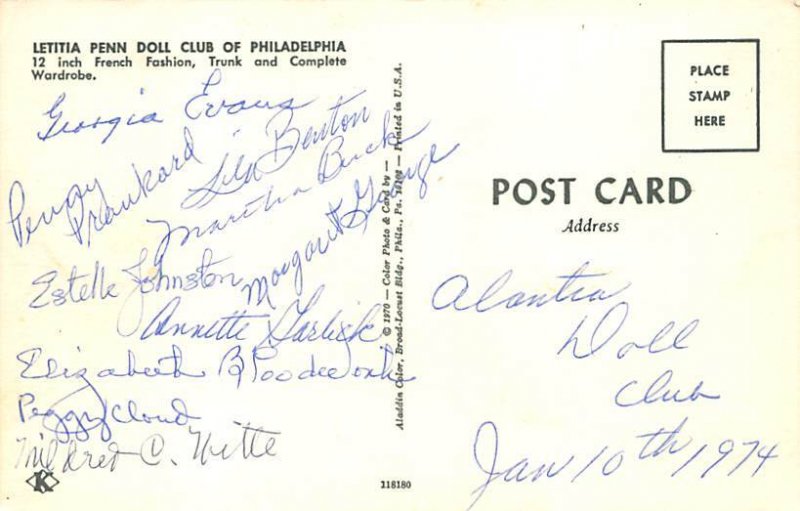 LETITIA PENN DOLL CLUB OF PHILADELPHIA
12 inch French Fashion, Trunk and Complete
Wardrobe.
Georgia Evans
Penny
Lila Benton
Martha Buck
Margaret George
Estelle Johnston
Annette Garlick
Elizabeth B
Peggy Cloud
Mildred C. Witte
K
© 1970 — Color Photo & Card by — Printed in U.S.A.
Aladdin Color, Broad-Locust Bldg., Phila., Pa.
118180
PLACE
STAMP
HERE
POST CARD
Address
Alantia
Doll
Club
Jan 10th 1974